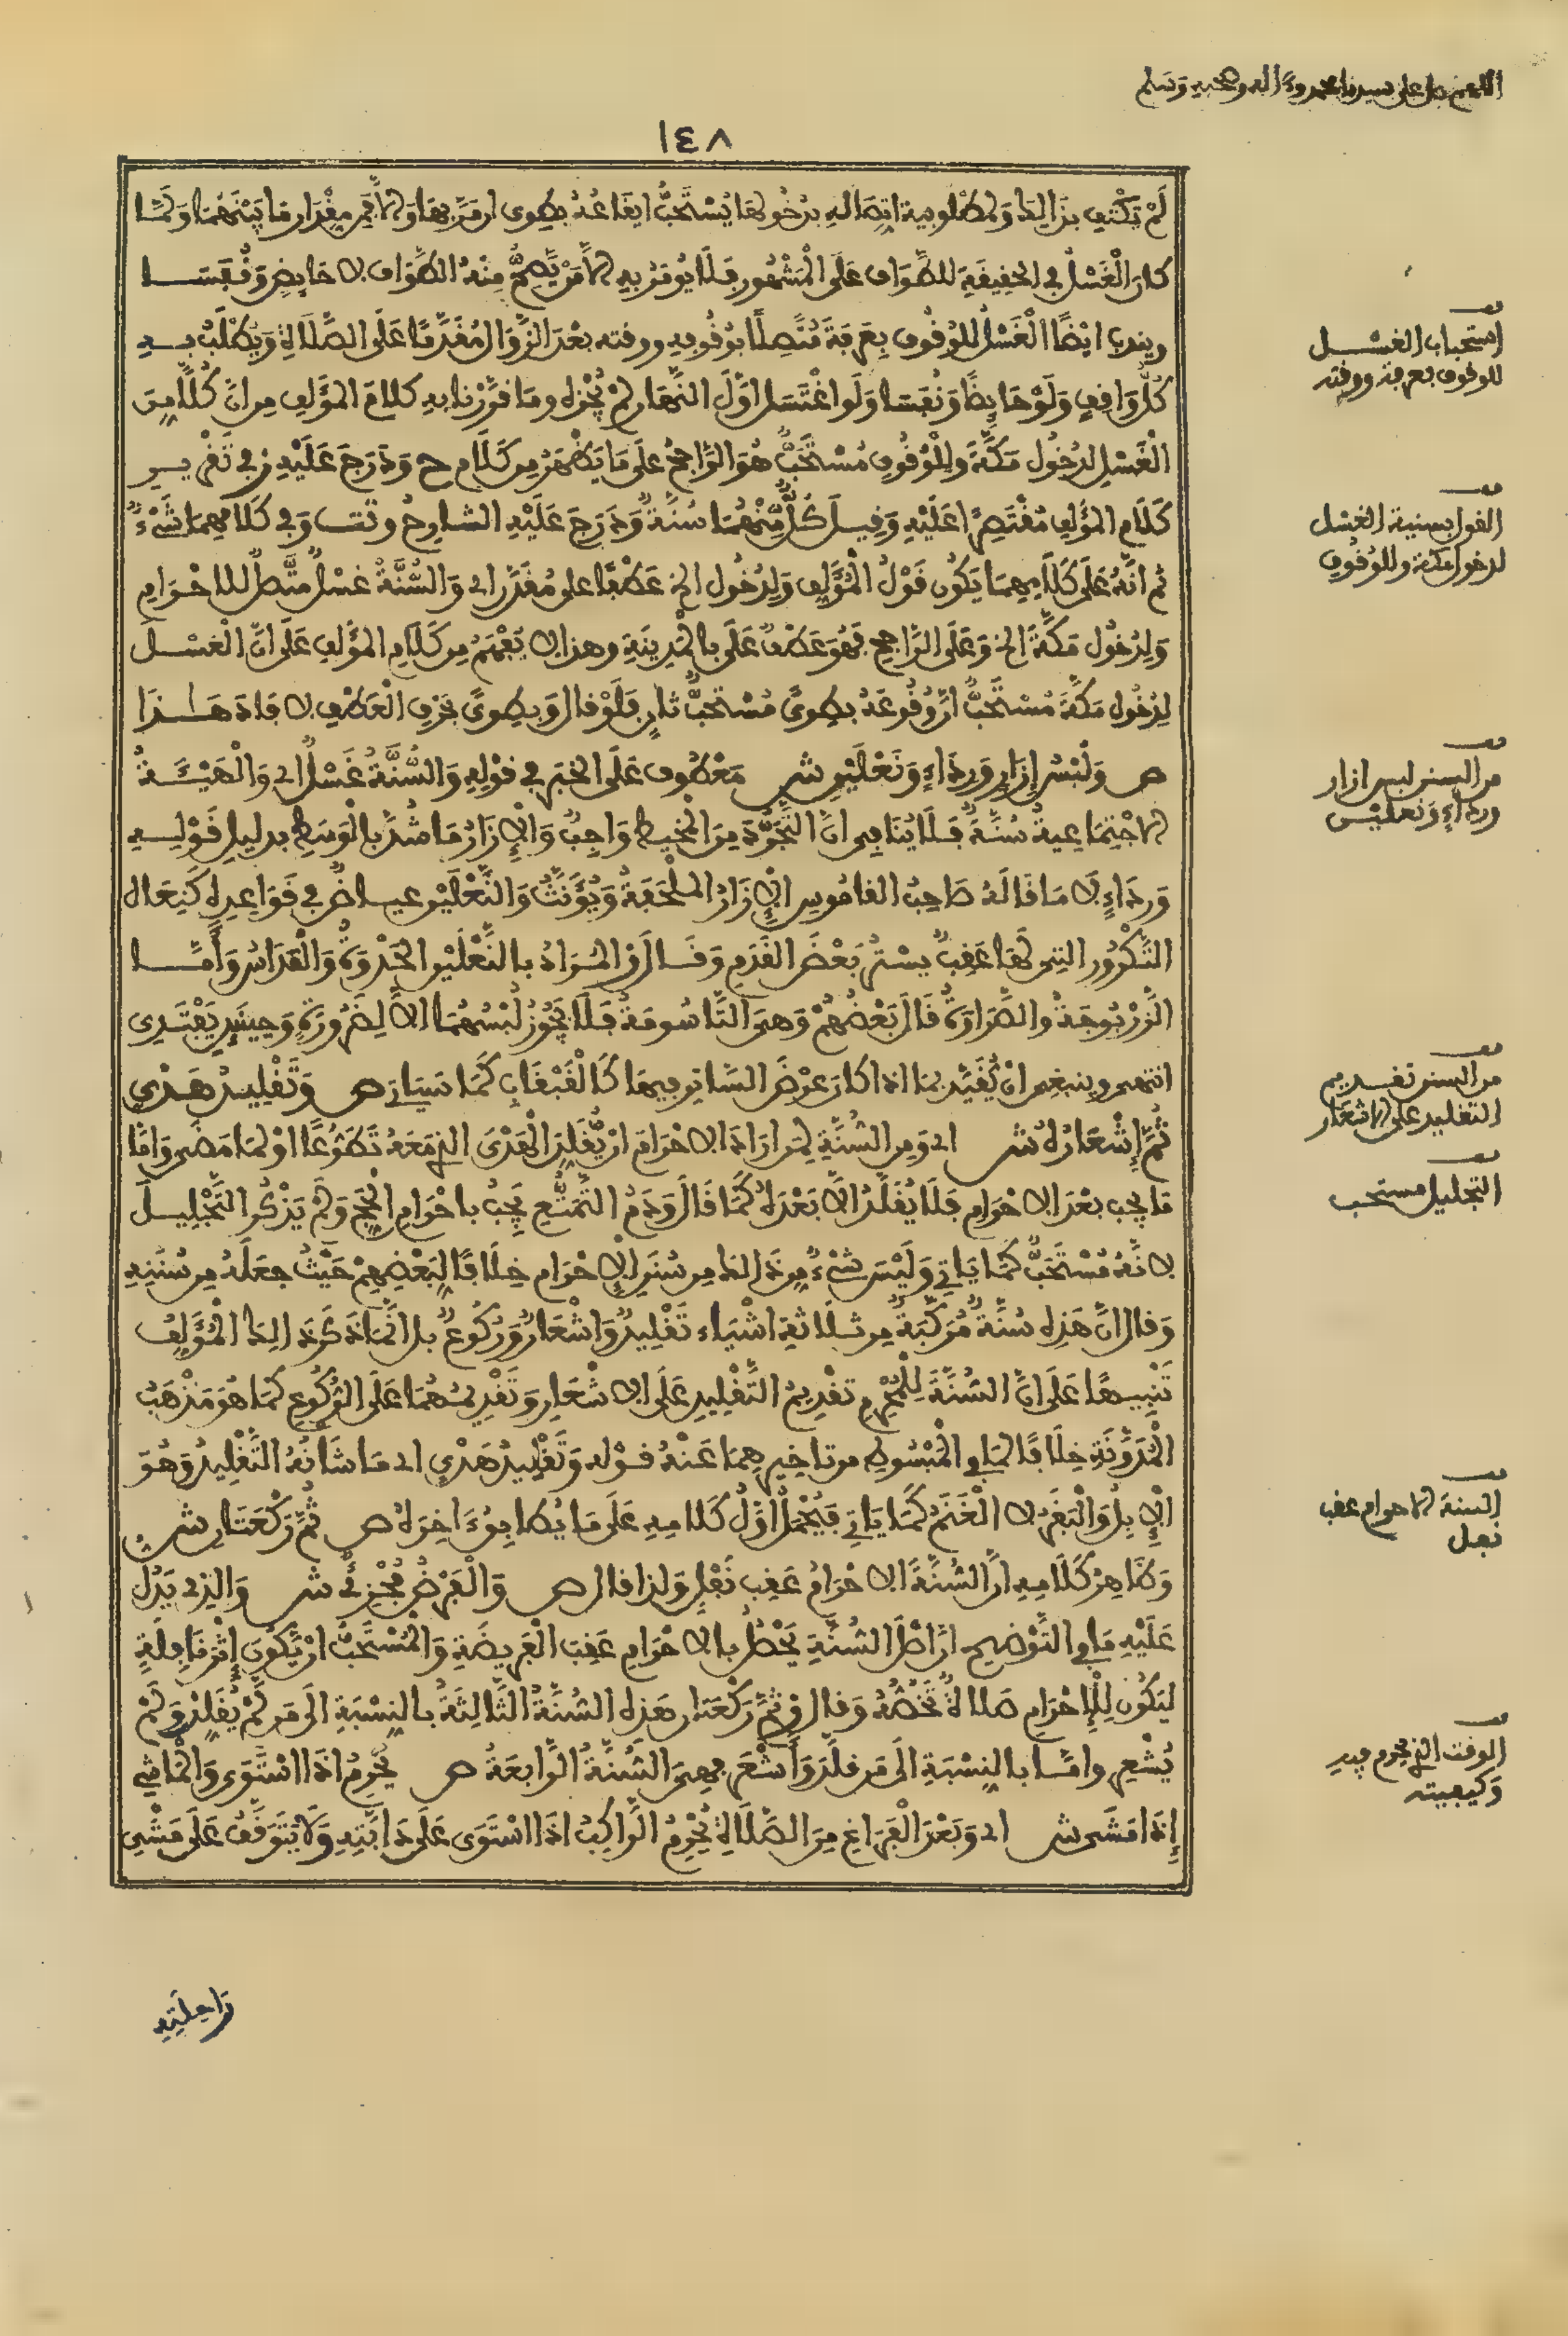 اللهم صل على سيدنا محمد وءاله وصحبه وسلم
١٤٨
لَمْ يَكْتَفِ بذَالِكَ وَلمطلوبية اتصاله بدُخُولها يُسْتَحَبُّ ايقاعُهُ بطوى ان مَرَّ بِهَا وَالا فمن مِقْدَار مَا بَيْنَهُمَا وَلَمَّا
كان الْغَسْلُ فِي الحَقِيقَةِ للطَّوَافِ عَلَى الْمَشْهُور فَلَا يُومَرُ بِهِ الا مَنْ يَّصِحُّ مِنْهُ الطَّوَاف لا حَايِضٍ وَنُفَسَا
ويندب ايْضًا الْغَسْلُ للوُقُوفِ بِعَرَفَةَ مُتَّصِلًا بوُقُوفِهِ ووقته بَعْدَ الزَّوَالِ مُقَدَّمًا عَلَى الصَّلَاةِ وَيُطْلَبُ بِهِ
كُلُّ وَاقِفٍ وَلَوْ حَايِضًا وَنُفَسَا وَلَو اغْتَسَلَ اوَّلَ النَّهَارِ لَمْ يُجْزِهِ ومَا قَرَّرْنَا بِهِ كلامَ المُؤَلِّفِ مِن انَّ كُلًّا مِنَ
الْغَسْلِ لدُخُول مَكَّةَ وللْوُقُوفِ مُسْتَحَبٌّ هُوَ الرَّاجِحُ عَلَى مَا يَظْهَرُ مِن كَلَامِ ح وَدَرَجَ عَلَيْهِ ز فِي تَقْرِيرِ
كَلَامِ المُؤَلِّفِ مُقْتَصِرًا عَلَيْهِ وَقِيلَ كُلٌّ مِّنْهُمَا سُنَّةٌ وَدَرَجَ عَلَيْهِ الشارِحُ وتت وَفِي كَلَامِهِمَا شَيْءٌ
ثم انَّهُ عَلَى كَلَامِهِمَا يَكُون قَوْلُ الْمُؤَلِّفِ وَلِدُخُول الخ عَطْفًا على مُقَدَّر اي وَالسُّنَّةُ غسْلٌ متَّصِلٌ للاحْرَامِ
وَلِدُخُول مَكَّةَ الخ وَعَلَى الرَّاجِحِ فَهُوَ عَطْفٌ عَلَى بالْمَدِينَةِ وهذا لا يُفْهَمُ مِن كَلَامِ المُؤَلِّفِ عَلَى انَّ الْغسْلَ
لِدُخُول مَكَّةَ مُسْتَحَبٌّ ارْ وُقُوعَهُ بطِوىً مُسْتَحَبٌّ ثَانٍ فَلَوْ قال وَبطِوىً بحَرْفِ الْعَطْفِ لافَادَ هَذَا
ص وَلُبْسُ إِزَارٍ وَرِدَاءٍ وَنَعْلَيْنِ ش مَعْطُوف عَلَى الخبَر في قوْلِهِ وَالسُّنَّةُ غَسْلٌ اي وَالْهَيْئَةُ
الاجْتِمَاعِيةُ سُنَّةٌ فَلَا يُنَافِي انَّ التَّجَرُّدَ مِنَ المَخِيطِ وَاجِبٌ وَالإزَارُ مَا شُدَّ بِالْوَسَطِ بدليلِ قَوْلِهِ
وَرِدَاءٍ لا مَا قَالَهُ صَاحِبُ القامُوسِ الإزَارُ المِلْحَفَةُ وَيُؤَنَّثُ وَالنَّعْلَيْنِ عياضٌ فِي قَوَاعِدِهِ كَنِعَال
التَّكْرُورِ التِي لَهَا عَقِبٌ يسْتُر بَعْضَ الْقَدَمِ وَقَالَ زرْ المُرَادُ بالنَّعْلَيْنِ الحَذْوَةُ وَالْقَدَاسُ وَأَمَّا
الزَّرْبُوجَةُ والصَّرَاوَةُ قَالَ بَعْضُهُمْ وَهِيَ التَّاسُومَةُ فَلَا يَجُوزُ لُبْسُهُمَا الا لِضَرُورَةٍ وَحِينَئِذٍ يَفْتَدِى
انتهى وينبغى انْ يُّقَيَّدَ بمَا اذا كان عَرْضَ السَّاتِر فِيهَا كَالْقَبْقَابِ كَمَا سَيَاتِي ص وَتَقْلِيدُ هَدْيٍ
ثُمَّ إِشْعَارُهُ ش اي وَمِن السُّنَّةِ لِمَن ارَادَ الاحْرَامَ انْ يُّقَلِّدَ الْهَدْىَ الذِي مَعَهُ تَطَوُّعًا اوْ لِمَا مَضَى وَامَّا
مَا يجب بعْدَ الاحْرَام فَلَا يُقَلَّدُ الا بَعْدَهُ كَمَا قَالَ وَدَمُ التَّمَتُّعِ يَجِبُ باحْرَامِ الحَجِّ وَلَمْ يَذْكُر التَّجْلِيلَ
لانَّهُ مُسْتَحَبٌّ كَمَا يَاتِي وَلَيْسَ شيْءٌ مِنْ ذَالِكَ مِن سُنَنِ الإحْرَام خِلَافًا لِبَعْضِهِمْ حَيْثُ جعَلَهُ مِن سُنَنِهِ
وَقال انَّ هَذِهِ سُنَّةٌ مُرَكَّبَةٌ مِن ثلَاثةِ اشْيَاء تَقْلِيدٌ وَاشْعَارٌ وَرُكُوعٌ بل انَّمَا ذَكَرَ ذَالِكَ الْمُؤَلِّفُ
تَنْبِيهًا عَلَى انَّ السُّنَّةَ لِلْمُحْرِمِ تقْدِيمُ التَّقْلِيدِ عَلَى الاشْعَارِ وَتَقْدِيمُهُمَا عَلَى الرُّكُوعِ كَمَا هُوَ مَذْهَبُ
الْمُدَوَّنَةِ خِلَافًا لمَا فِي الْمَبْسُوطِ من تاخِيرِهِمَا عَنْهُ قَوْله وَتَقْلِيدُ هَدْيٍ اي مَا شَانُهُ التَّقْلِيدُ وَهُوَ
الإبِلُ وَالْبَقَرُ لا الْغَنَمُ كَمَا يَاتِي فَيُحْمَلُ اوَّلُ كَلَامِهِ عَلَى مَا يُطَابِقُ ءَاخِرَهُ ص ثُمَّ رَكْعَتَانِ ش
وَظَاهِرُ كَلَامِهِ انَّ السُّنَّةَ الاحْرَامُ عَقِب نَفْلٍ وَلِذا قال ص وَالْفَرْضُ مُجْزِئٌ ش وَالذِي يَدُلُّ
عَلَيْهِ مَا فِي التَّوْضيحِ انَّ اصْلَ السُّنَّةِ يَحْصُلُ بالاحْرَامِ عَقِبَ الْفَرِيضَةِ وَالْمُسْتَحَبُّ انْ يَّكُونَ إِثْرَ نَافِلَةٍ
لِيَكُون لِلْإِحْرَامِ صَلاةٌ تَخُصُّهُ وَقال ق ثُمَّ رَكْعَتَان هَذِهِ السُّنَّةُ الثَّالِثَةُ بالنِسْبَةِ الَى مَن لَّمْ يُقَلِّدْ وَلَمْ
يُشْعِر وامَّا بالنِسْبَةِ الَى مَن قلَّدَ وَأَشْعَرَ فهِيَ السُّنَّةُ الرَّابعَةُ ص يُحْرِمُ اذَا اسْتَوَى وَالْمَاشِي
إِذَا مَشَى ش اي وَبَعْدَ الْفَرَاغِ مِنَ الصَّلَاةِ يُحْرِمُ الرَّاكِبُ اذَا اسْتَوَى عَلَى دَابَّتِهِ وَلا يَتَوَقَّفُ عَلَى مَشْىِ
رَاحِلَتِهِ
قف
استحباب الغسل
للوقوف بعرفة ووقته
قف
القول بسنية الغسل
لدخول مكة وللوُقُوفِ
قف
من السنن لبس ازار
ورداءٍ وَنعليْن
قف
من السنن تقديم
التقليد على الاشعَار
قف
التجليل مستحب
قف
السنة الاحرام عقب
نفل
قف
الوقت الذي يحرم فِيهِ
وَكيفيته